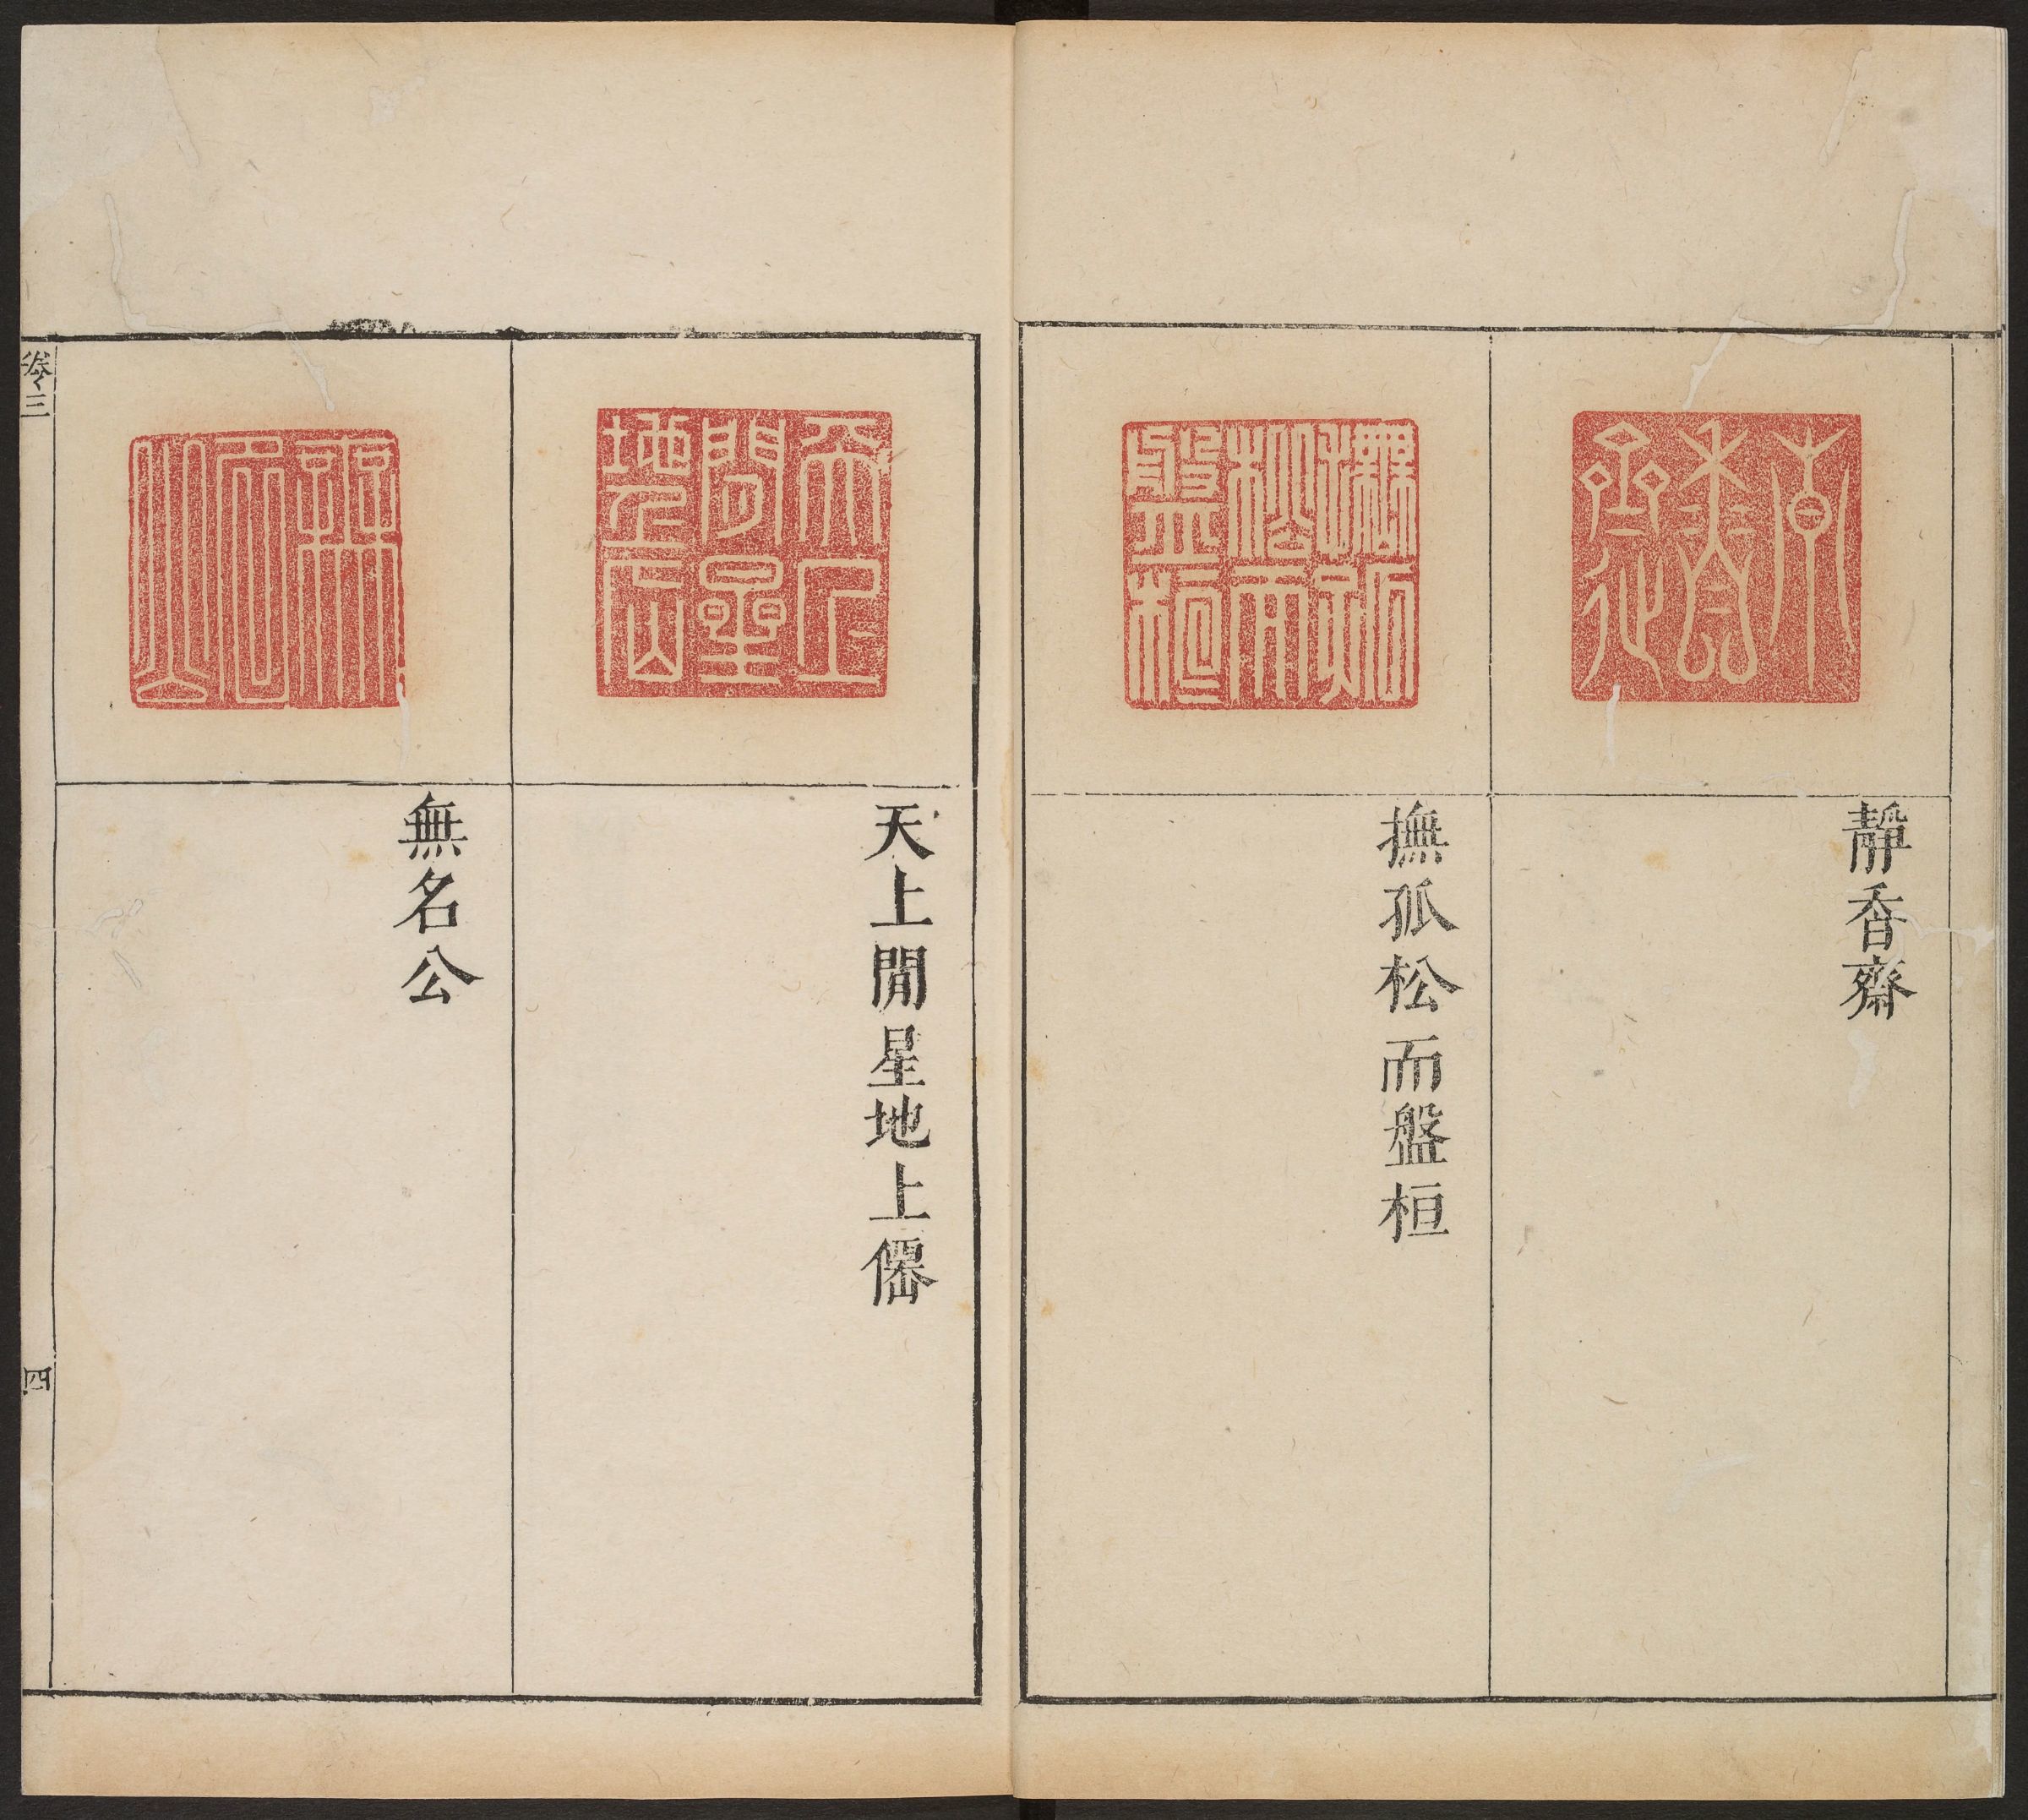 靜香齋
撫孤松而盤桓
天上閒星地上僊
無名公
卷三
四